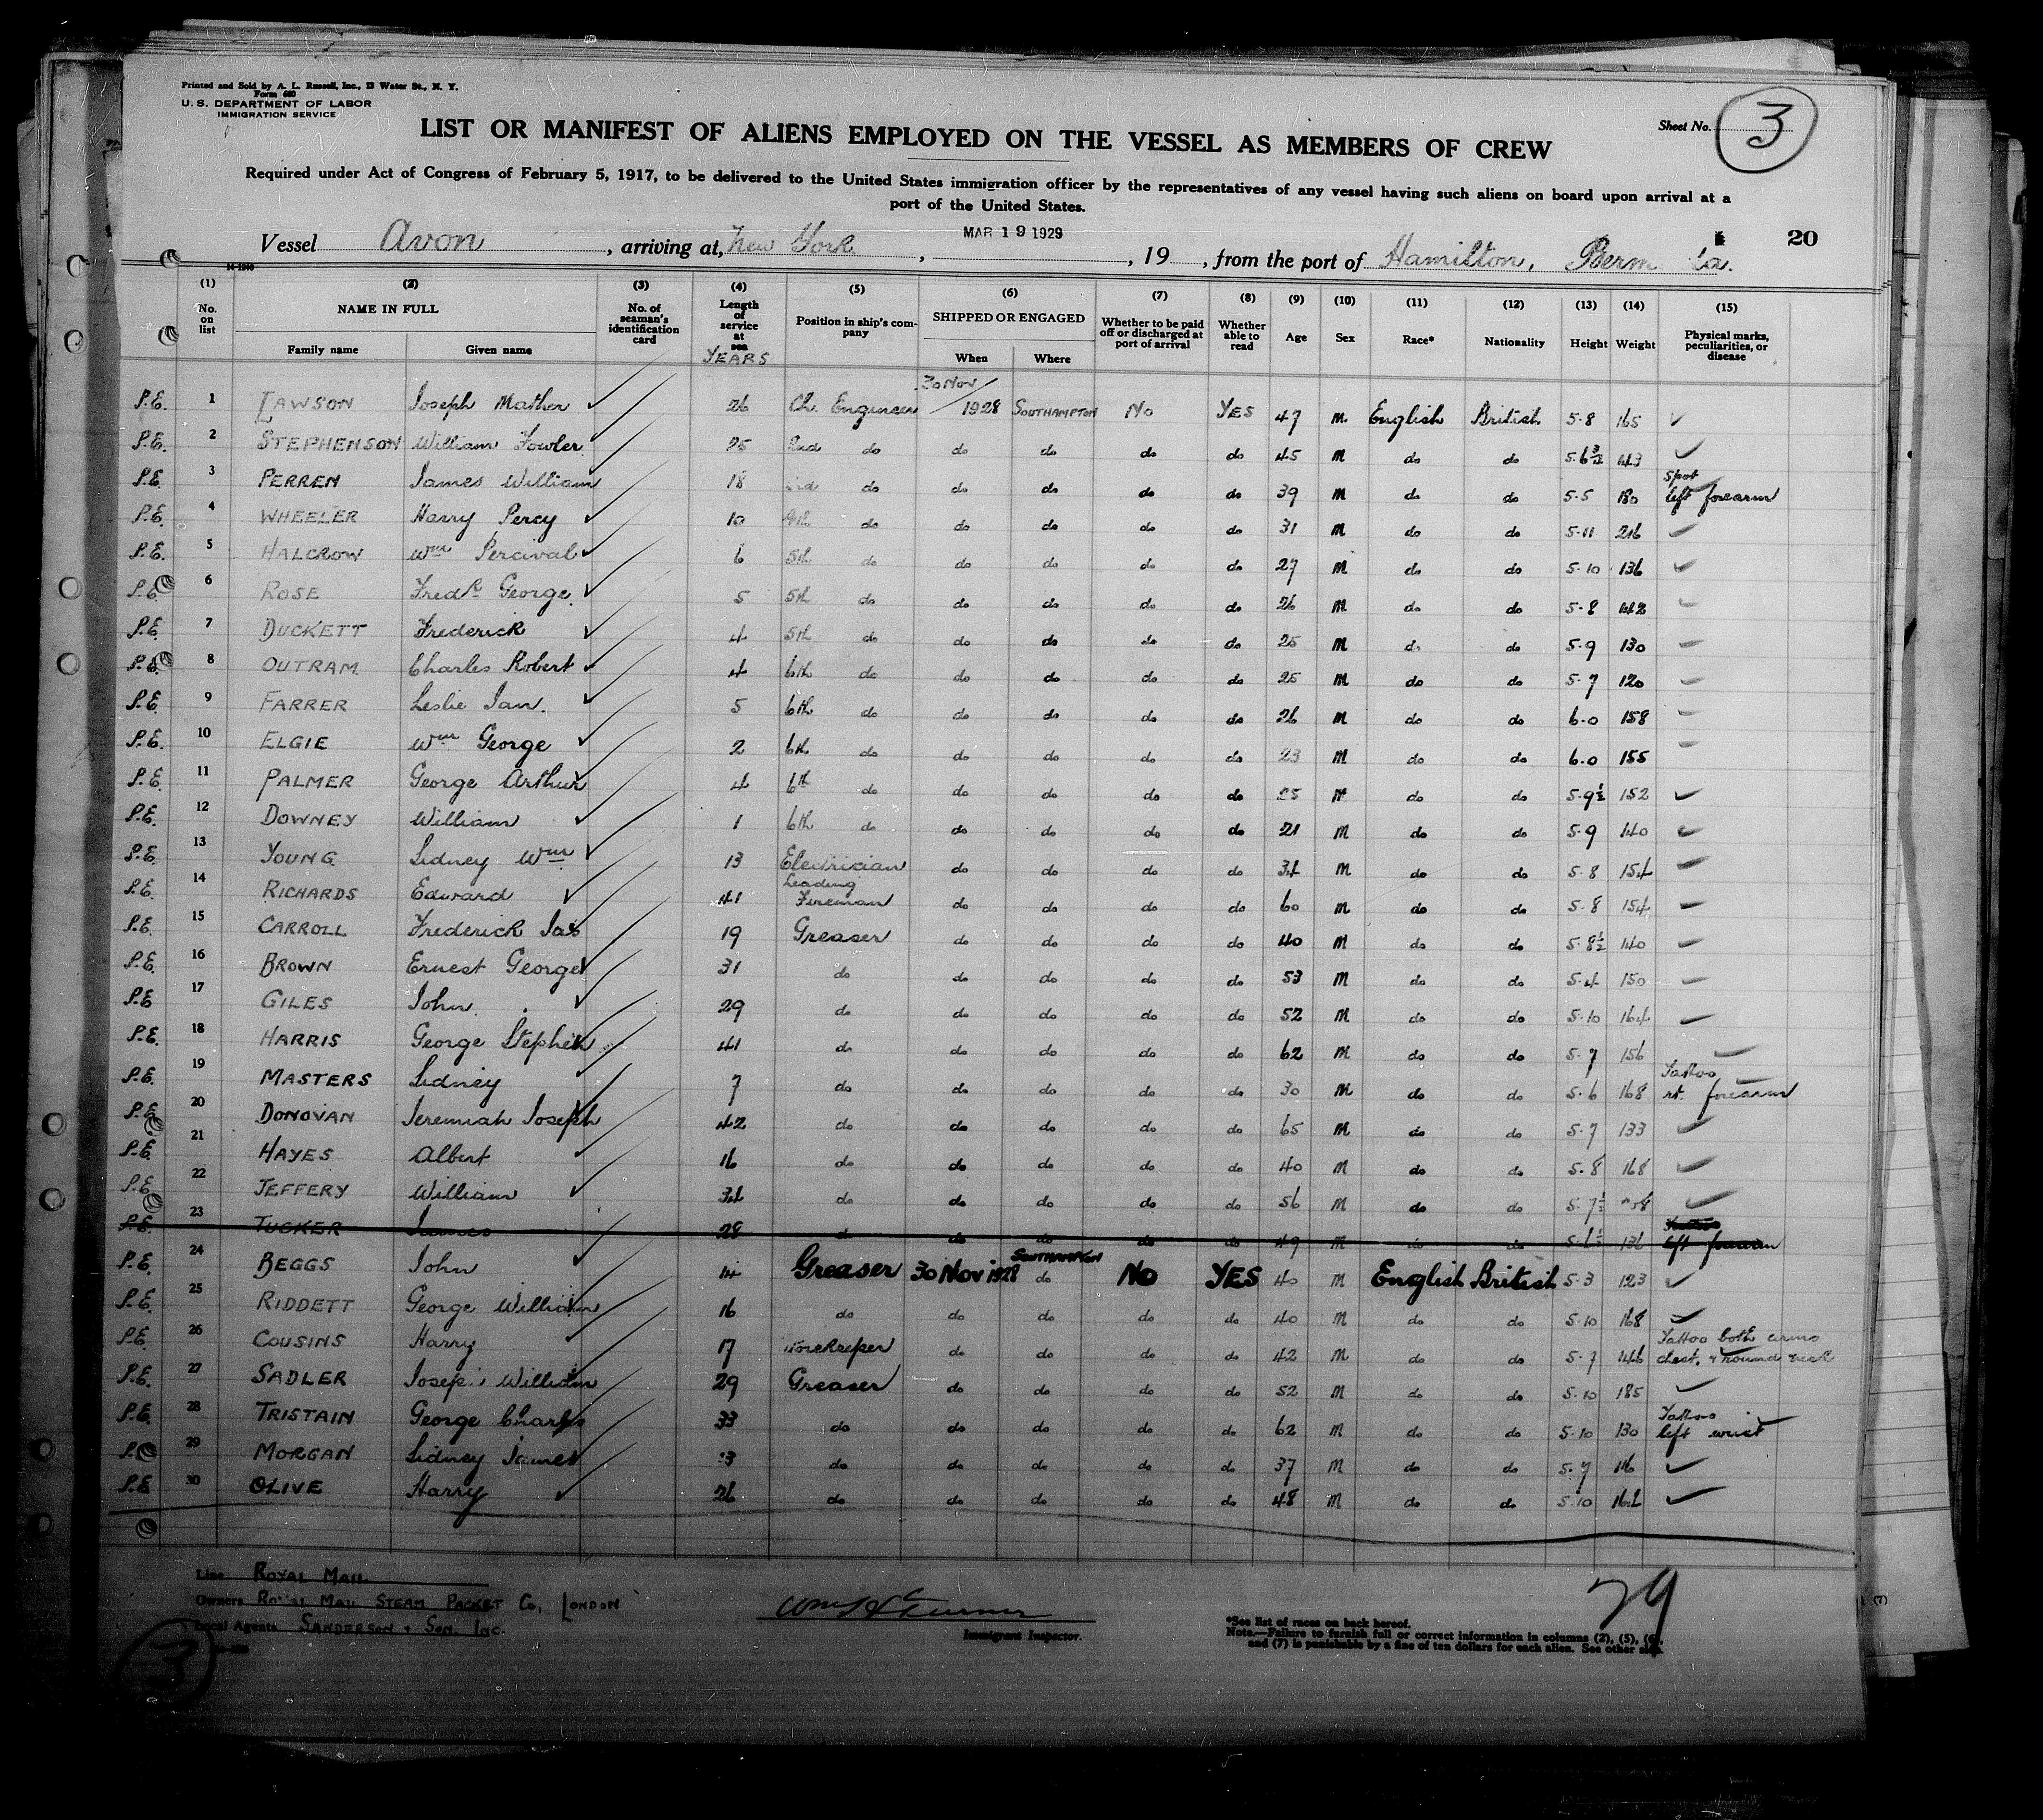 Printed and Sold by A. L. Russell, Inc., 13 Water St., N. Y.
Form 680
U. S. DEPARTMENT OF LABOR
IMMIGRATION SERVICE
Sheet No. 3
LIST OR MANIFEST OF ALIENS EMPLOYED ON THE VESSEL AS MEMBERS OF CREW
Required under Act of Congress of February 5, 1917, to be delivered to the United States immigration officer by the representatives of any vessel having such aliens on board upon arrival at a
port of the United States.
Vessel Avon, arriving at, New York, MAR 19 1929, 19 , from the port of Hamilton, Berm da. 20
14-1240
(1) (2) (3) (4) (5) (6) (7) (8) (9) (10) (11) (12) (13) (14) (15)
No. on list NAME IN FULL Family name Given name No. of seaman's identification card Length of service at sea YEARS Position in ship's company SHIPPED OR ENGAGED When Where Whether to be paid off or discharged at port of arrival Whether able to read Age Sex Race* Nationality Height Weight Physical marks, peculiarities, or disease
P.E. 1 LAWSON Joseph Mather ✓ 26 Ch. Engineer 30 Nov/1928 SOUTHAMPTON No YES 47 M. English British 5-8 165 ✓
P.E. 2 STEPHENSON William Fowler 25 2nd do do do do do 45 M do do 5.6 143 ✓
P.E. 3 PERREN James William 18 3rd do do do do do 39 M do do 5-5 180 Spot left forearm
P.E. 4 WHEELER Harry Percy ✓ 10 4th do do do do do 31 M do do 5-11 216 ✓
P.E. 5 HALCROW Wm Percival ✓ 6 5th do do do do do 27 M do do 5-10 136 ✓
P.E. 6 ROSE Fredk George ✓ 5 5th do do do do do 26 M do do 5-8 142 ✓
P.E. 7 DUCKETT Frederick ✓ 4 5th do do do do do 25 M do do 5-9 130 ✓
P.E. 8 OUTRAM Charles Robert ✓ 4 6th do do do do do 25 M do do 5-7 120 ✓
P.E. 9 FARRER Leslie Ian. ✓ 5 6th do do do do do 26 M do do 6-0 158 ✓
P.E. 10 ELGIE Wm George ✓ 2 6th do do do do do 23 M do do 6-0 155 ✓
P.E. 11 PALMER George Arthur ✓ 4 6th do do do do do 25 M do do 5-9½ 152 ✓
P.E. 12 DOWNEY William ✓ 1 6th do do do do do 21 M do do 5-9 140 ✓
P.E. 13 YOUNG Sidney Wm ✓ 13 Electrician do do do do 34 M do do 5-8 154 ✓
P.E. 14 RICHARDS Edward ✓ 41 Leading Fireman do do do do 60 M do do 5-8 154 ✓
P.E. 15 CARROLL Frederick Jas ✓ 19 Greaser do do do do 40 M do do 5-8½ 140 ✓
P.E. 16 BROWN Ernest George ✓ 31 do do do do do 53 M do do 5-4 150 ✓
P.E. 17 GILES John ✓ 29 do do do do do 52 M do do 5-10 164 ✓
P.E. 18 HARRIS George Stephen ✓ 41 do do do do do 62 M do do 5-7 156 ✓
P.E. 19 MASTERS Sidney ✓ 7 do do do do do 30 M do do 5-6 168 Tattoo rt. forearm
P.E. 20 DONOVAN Jeremiah Joseph ✓ 42 do do do do do 65 M do do 5-7 133 ✓
P.E. 21 HAYES Albert ✓ 16 do do do do do 40 M do do 5-8 168 ✓
P.E. 22 JEFFERY William ✓ 34 do do do do do 56 M do do 5-7½ ✓
P.E. 23 TUCKER James 28 do do do do do 49 M do do 5-6½ 136 Tattoo left forearm
P.E. 24 BEGGS John ✓ 14 Greaser 30 Nov 1928 SOUTHAMPTON do No YES 40 M English British 5-3 123 ✓
P.E. 25 RIDDETT George William ✓ 16 do do do do do 40 M do do 5-10 168 ✓
P.E. 26 COUSINS Harry ✓ 17 Storekeeper do do do do 42 M do do 5-7 146 Tattoo both arms chest, & round neck
P.E. 27 SADLER Joseph William ✓ 29 Greaser do do do do 52 M do do 5-10 185 ✓
P.E. 28 TRISTAIN George Charles 33 do do do do do 62 M do do 5-10 130 Tattoo left wrist ✓
P.E. 29 MORGAN Sidney James do do do do do 37 M do do 5-7 116 ✓
P.E. 30 OLIVE Harry ✓ 26 do do do do do 48 M do do 5-10 ✓
Line ROYAL MAIL
Owners ROYAL MAIL STEAM PACKET Co, LONDON
Local Agents SANDERSON & Son. Inc.
Wm H Turner
Immigrant Inspector.
29
*See list of races on back hereof.
Note.—Failure to furnish full or correct information in columns (2), (5), (6),
and (7) is punishable by a fine of ten dollars for each alien. See other side.
3